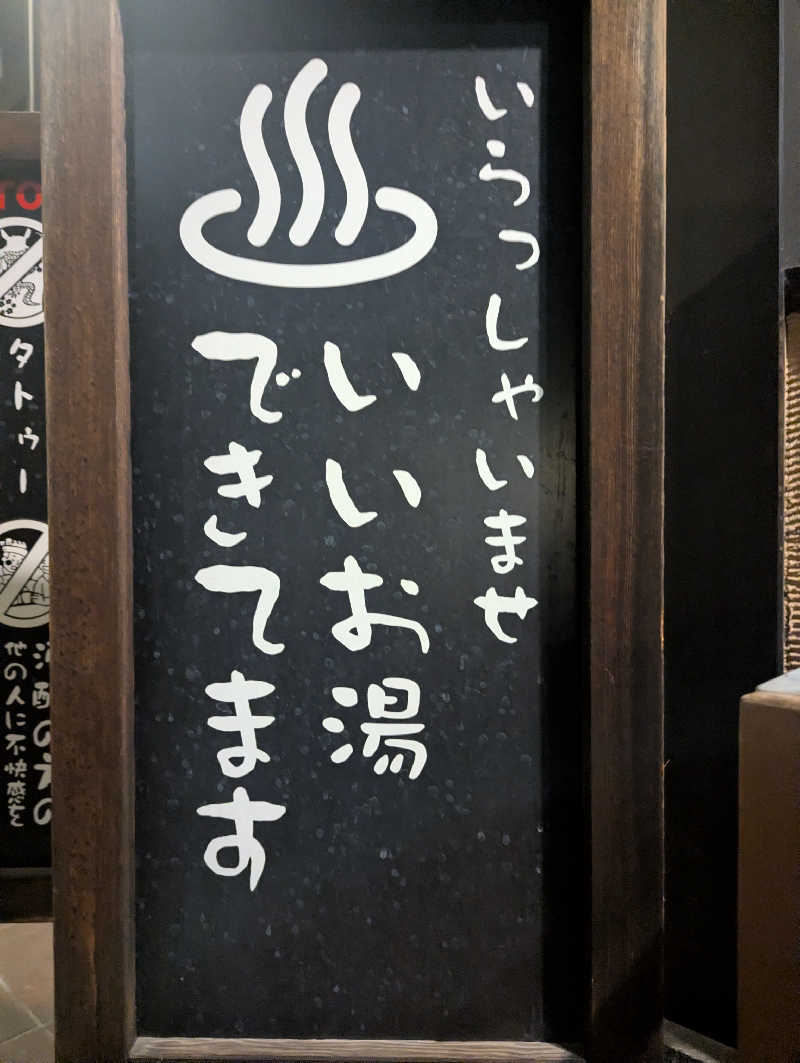 いらっしゃいませ
いいお湯
できてます
TO
タトゥー
泥酔の方の
他の人に不快感を